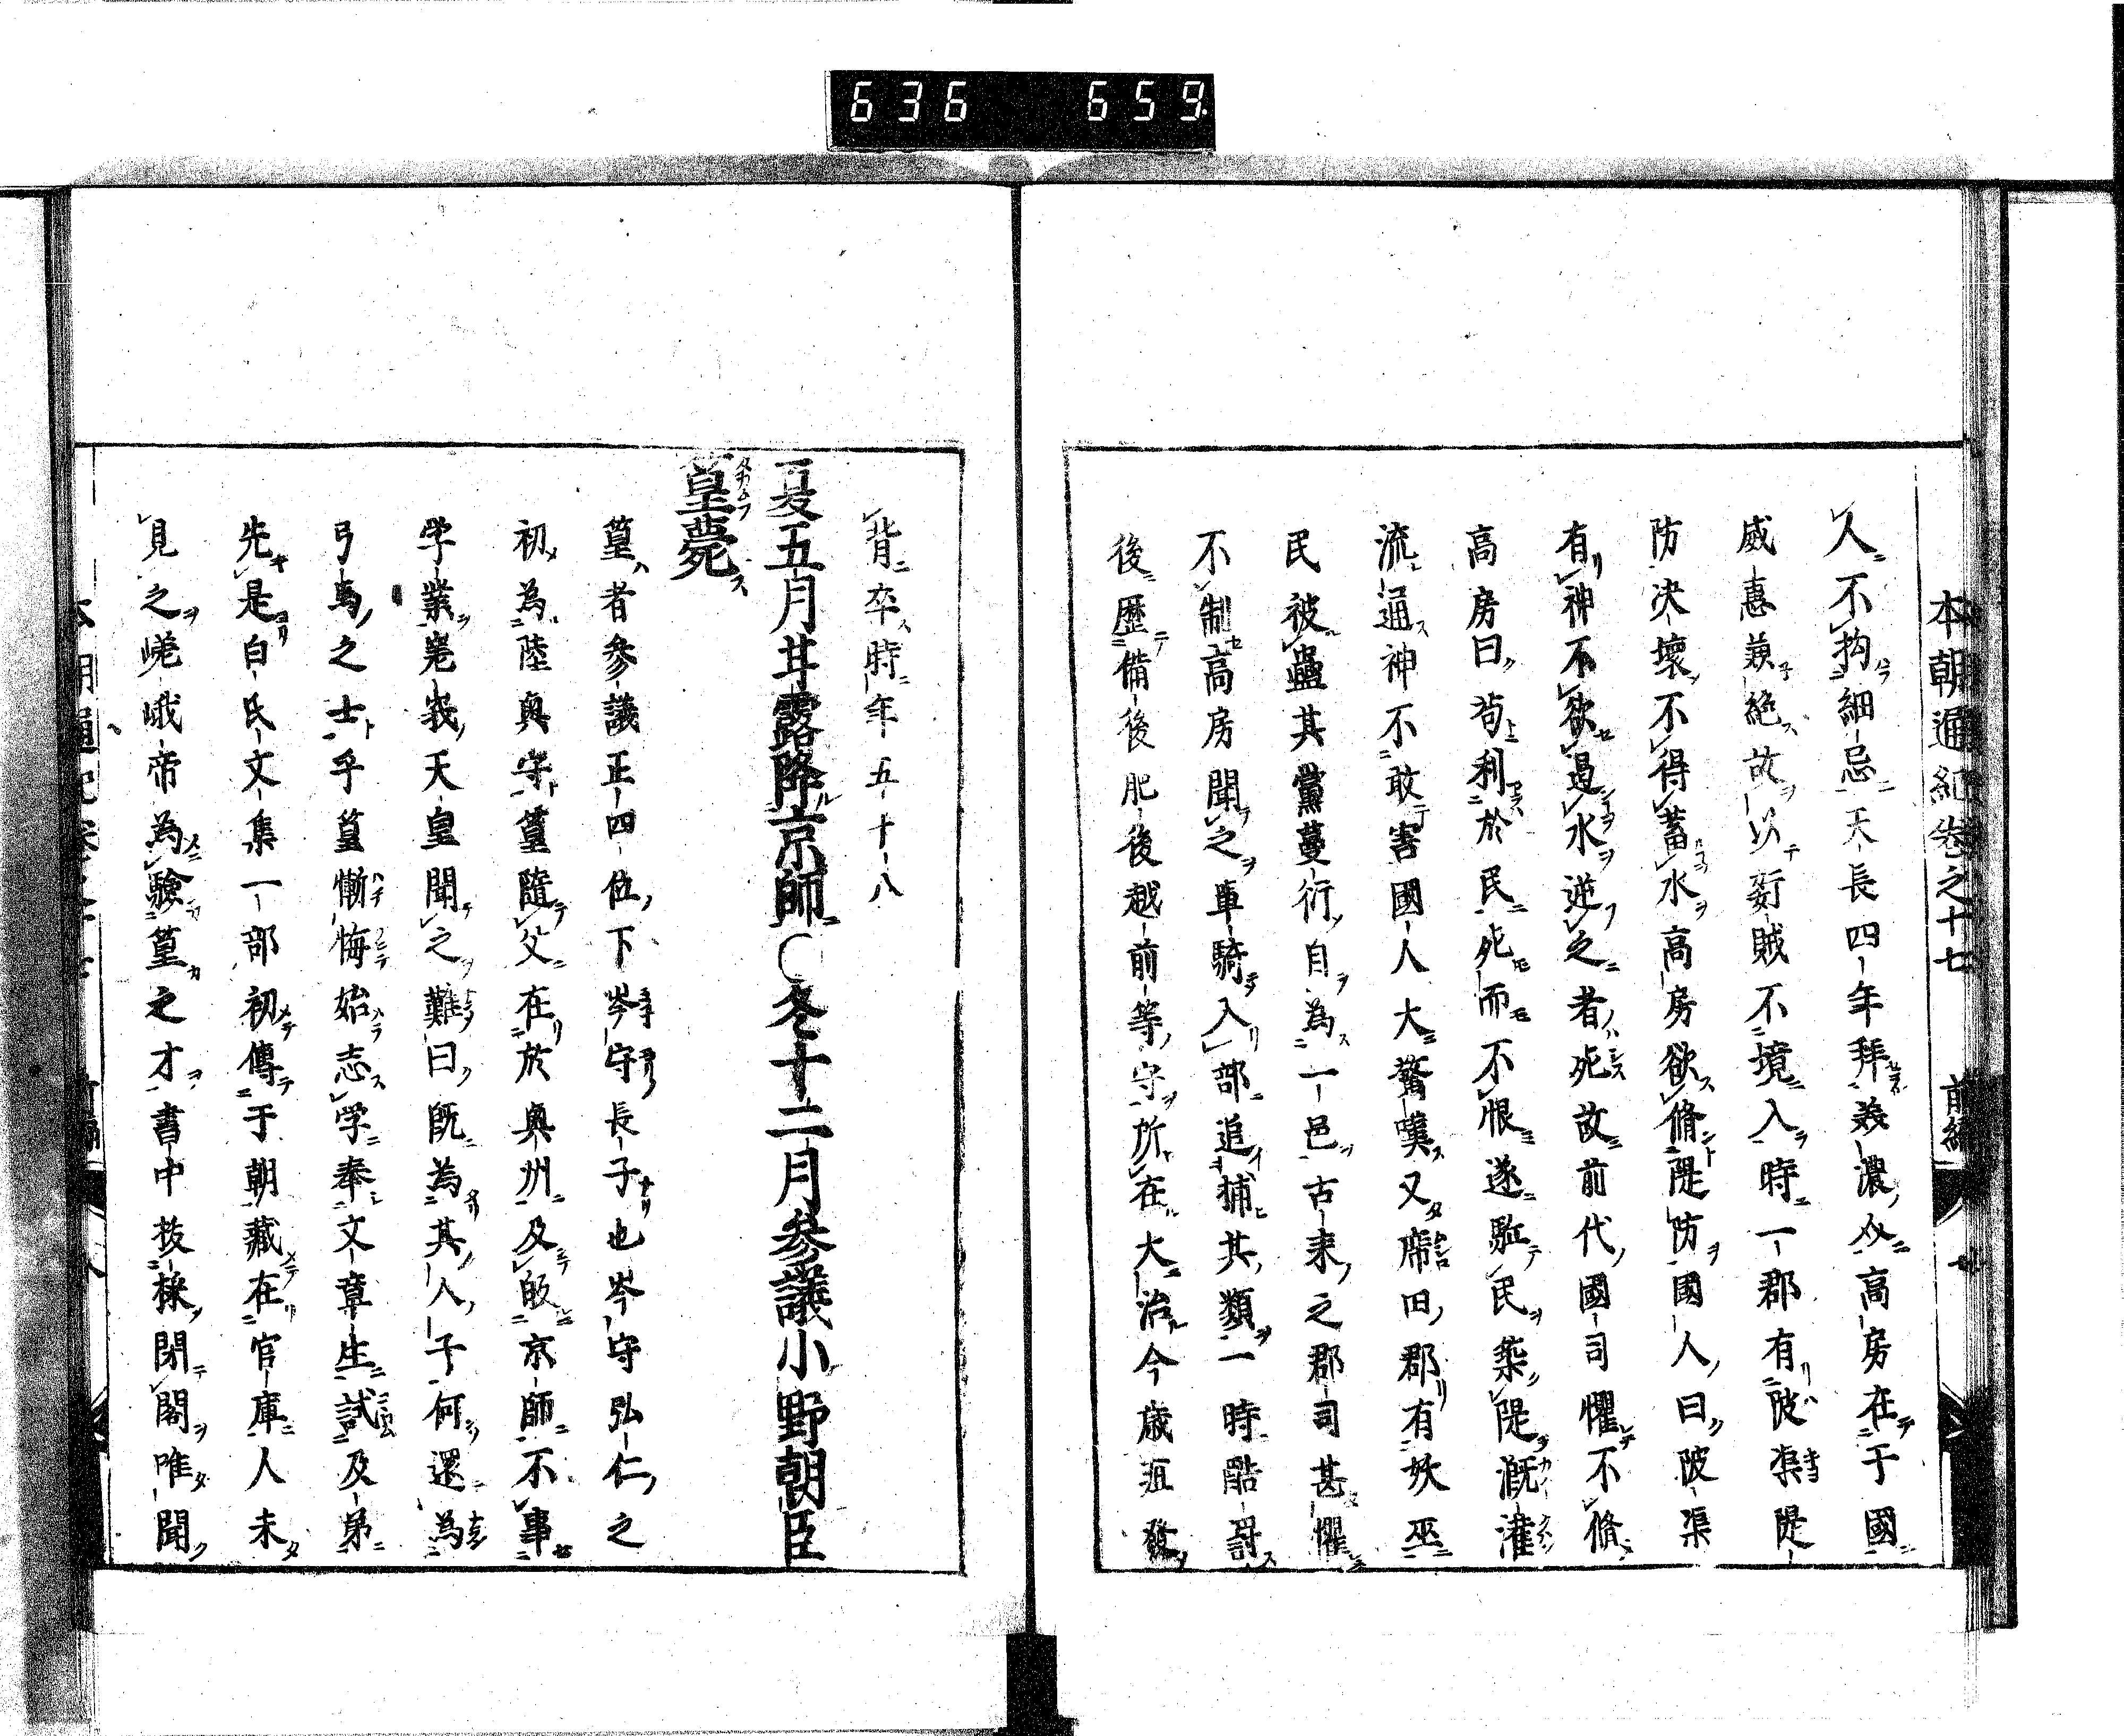 636 659
本朝通紀卷之十七 前編 七
人不拘細忌天長四年拜美濃㕘高房在于國
威惠兼絶故以姧賊不境入時一郡有陂渠隄
防决壞不得蓄水高房欲脩隄防國人曰陂渠
有神不欲過水逆之者死故前代國司懼不脩
高房曰苟利於民死而不恨遂駈民築隄漑灌
流通神不敢害國人大驚嘆又席田郡有妖巫
民被蠱其黨蔓衍自為一邑古来之郡司甚懼
不制高房聞之單騎入部追捕其類一時酷罸
後歷備後肥後越前等守所在大治今歳疽發
背卒時年五十八
夏五月甘露降京師○冬十二月參議小野朝臣
篁薨
篁者參議正四位下岑守長子也岑守弘仁之
初為陸奥守篁隨父在於奥州及皈京師不事
学業嵬峩天皇聞之難曰既為其人子何還為
弓馬之士乎篁慚悔始志学奉文章生試及第
先是白氏文集一部初傳于朝藏在官庫人未
見之嵯峨帝為驗篁之才書中抜様閉閣唯聞